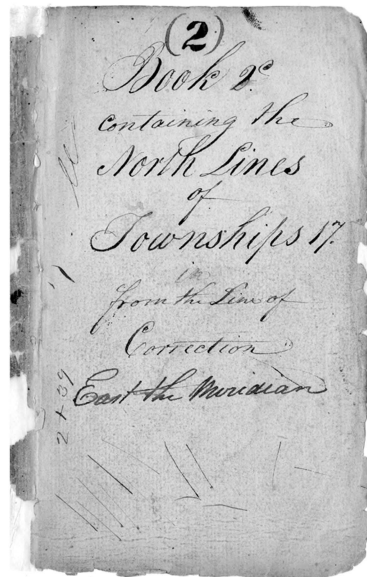 (2)
Book 2d.
containing the
North Lines
of
Townships 17.
in
from the Line of
Correction
East the Meridian
2+39